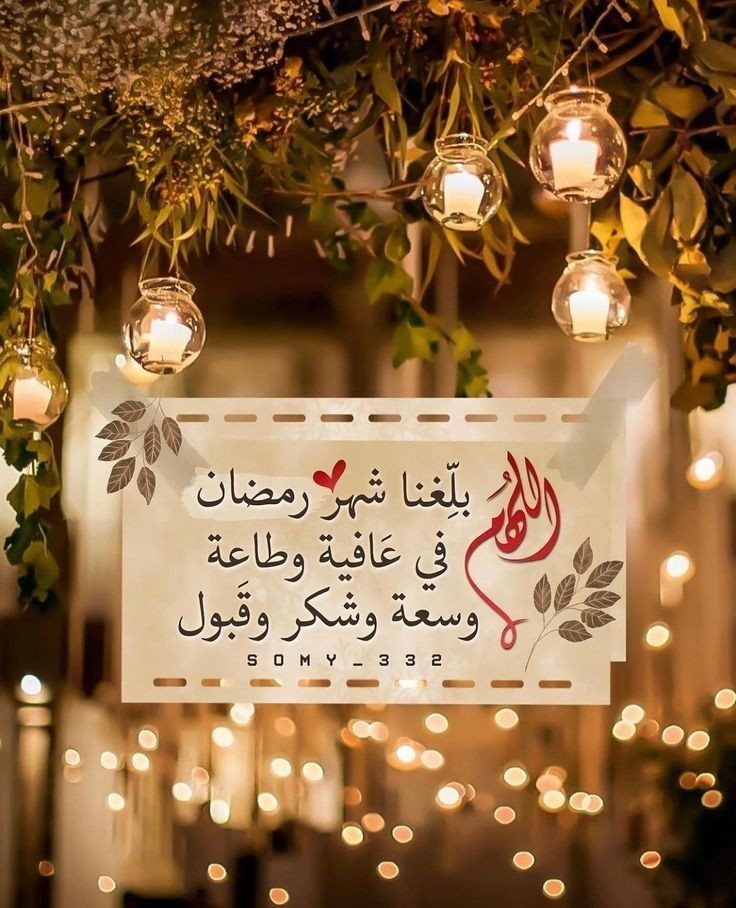 اللهم بلِّغنا شهر رمضان
في عَافية وطاعة
وسعة وشكر وقَبول
SOMY_332